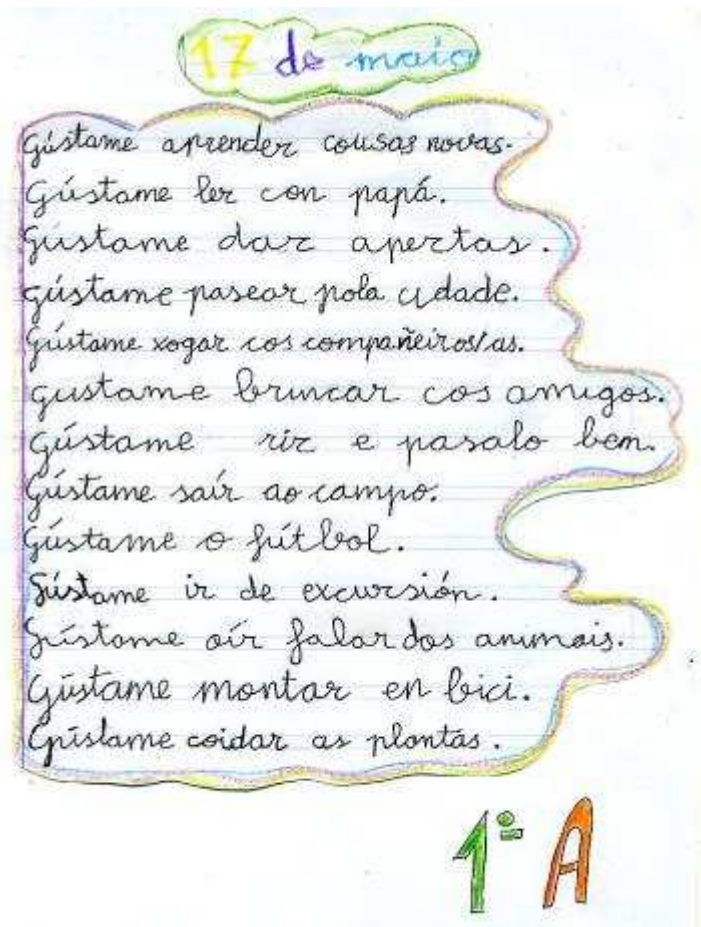 17 de maio
Gústame aprender cousas novas.
Gústame ler con papá.
Gústame dar apertas.
gústame pasear pola cidade.
Gústame xogar cos compañeiros/as.
gustame brincar cos amigos.
Gústame rir e pasalo ben.
Gústame saír ao campo.
Gústame o fútbol.
Gústame ir de excursión.
Gústame oír falar dos animais.
Gústame montar en bici.
Gústame coidar as plantas.
1º A